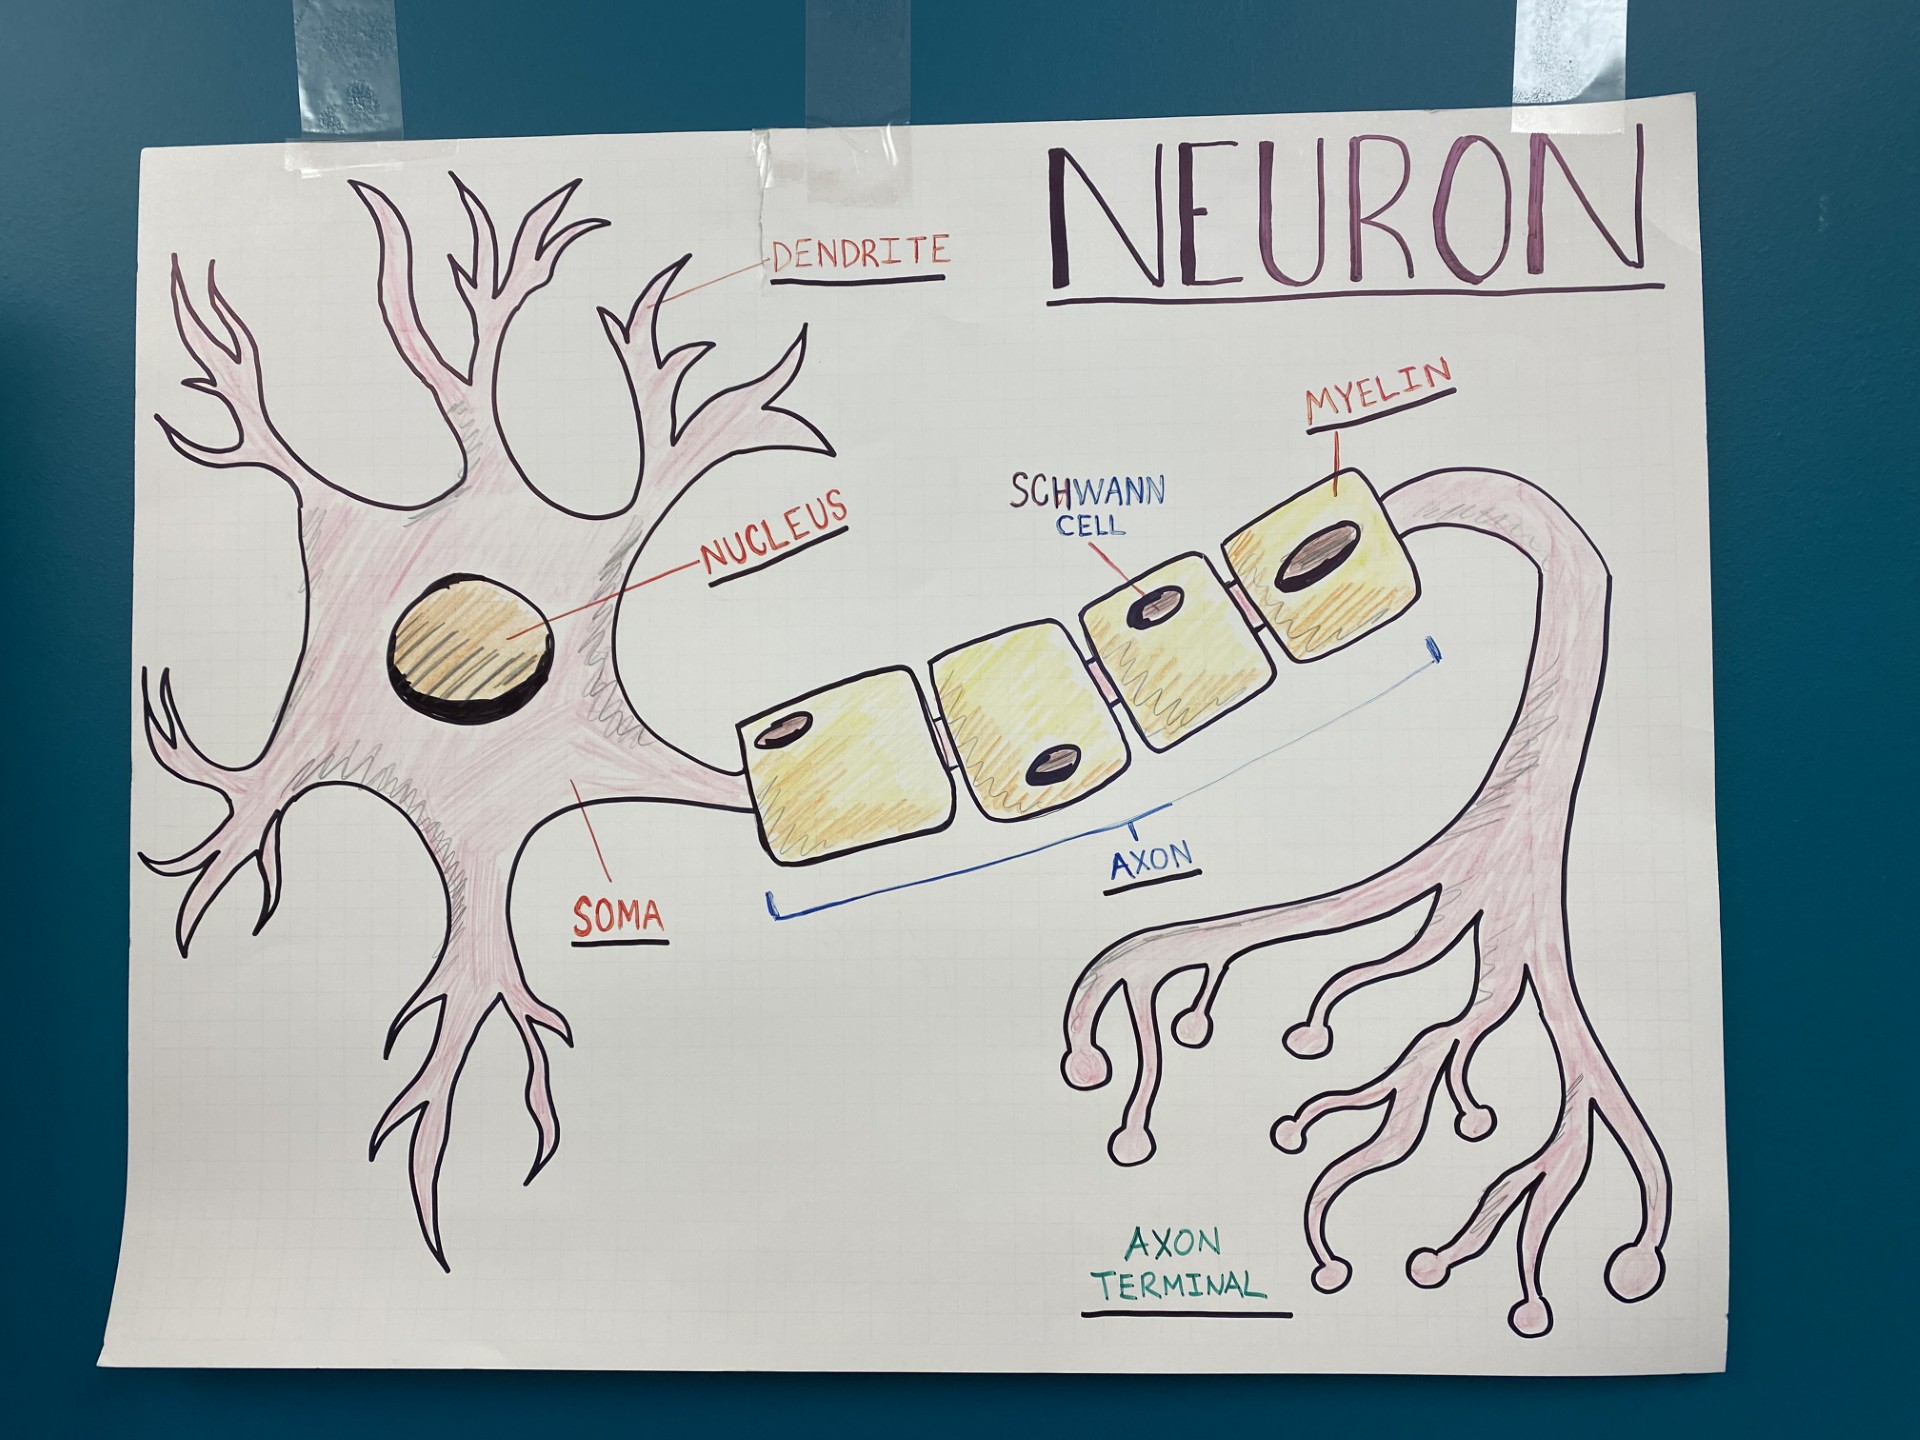 NEURON
DENDRITE
MYELIN
SCHWANN
CELL
NUCLEUS
AXON
SOMA
AXON
TERMINAL